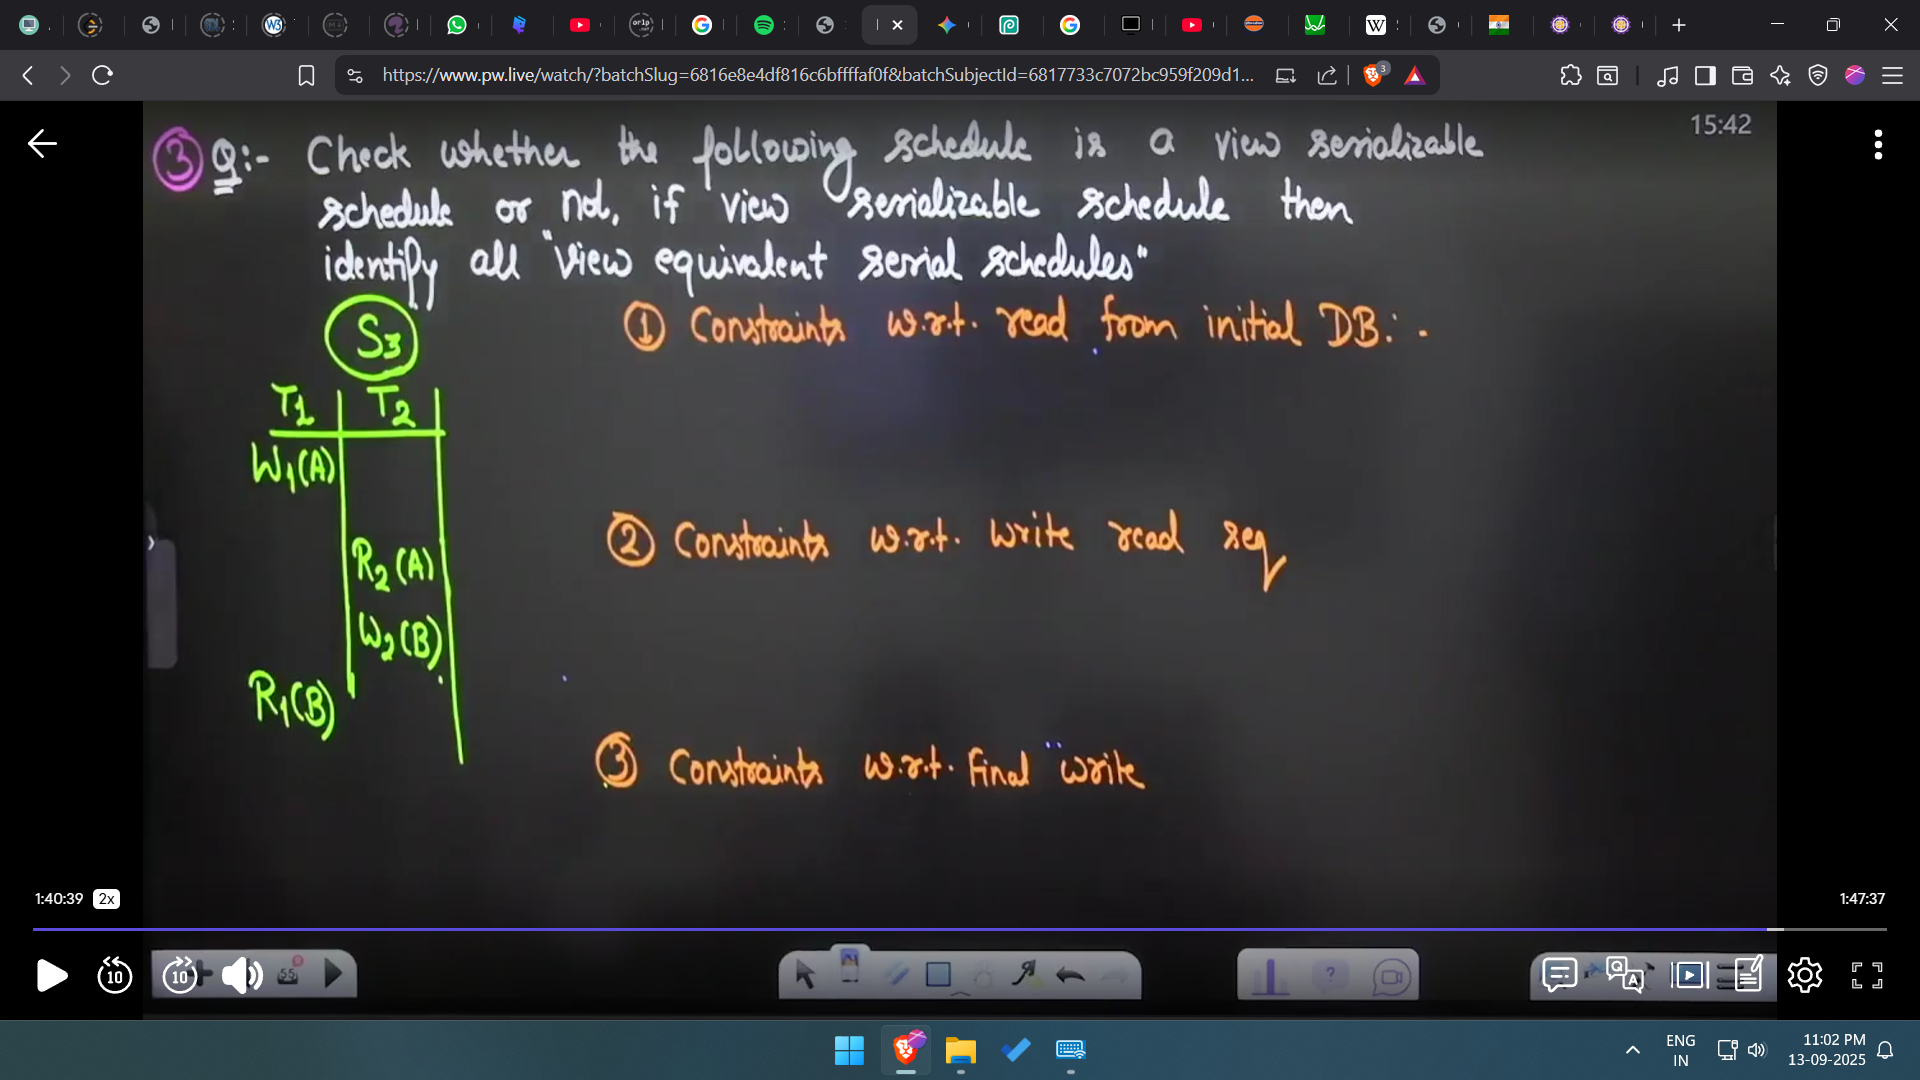 https://www.pw.live/watch/?batchSlug=6816e8e4df816c6bffffaf0f&batchSubjectId=6817733c7072bc959f209d1...
3
15:42
③ Q:- Check whether the following schedule is a view serializable
schedule or not, if view serializable schedule then
identify all "view equivalent serial schedules"
S3
① Constraints w.r.t. read from initial DB:-
T1 T2
W1(A)
② Constraints w.r.t. write read seq
R2(A)
W2(B)
R1(B)
③ Constraints w.r.t. final write
1:40:39 2x
1:47:37
10
10
55
ENG
IN
11:02 PM
13-09-2025